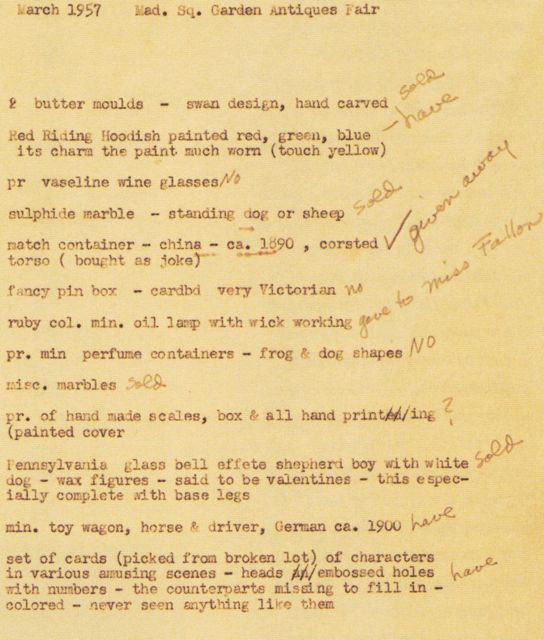 March 1957    Mad. Sq. Garden Antiques Fair
2 butter moulds - swan design, hand carved sold
Red Riding Hoodish painted red, green, blue - have
its charm the paint much worn (touch yellow)
pr vaseline wine glasses No
sulphide marble - standing dog or sheep sold
match container - china - ca. 1890 , corsted ✓ given away
torso ( bought as joke)
fancy pin box - cardbd very Victorian no
ruby col. min. oil lamp with wick working gave to Miss Fallon
pr. min perfume containers - frog & dog shapes NO
misc. marbles sold
pr. of hand made scales, box & all hand printing ?
(painted cover
Pennsylvania glass bell effete shepherd boy with white sold
dog - wax figures - said to be valentines - this espec-
ially complete with base legs
min. toy wagon, horse & driver, German ca. 1900 have
set of cards (picked from broken lot) of characters
in various amusing scenes - heads embossed holes have
with numbers - the counterparts missing to fill in -
colored - never seen anything like them